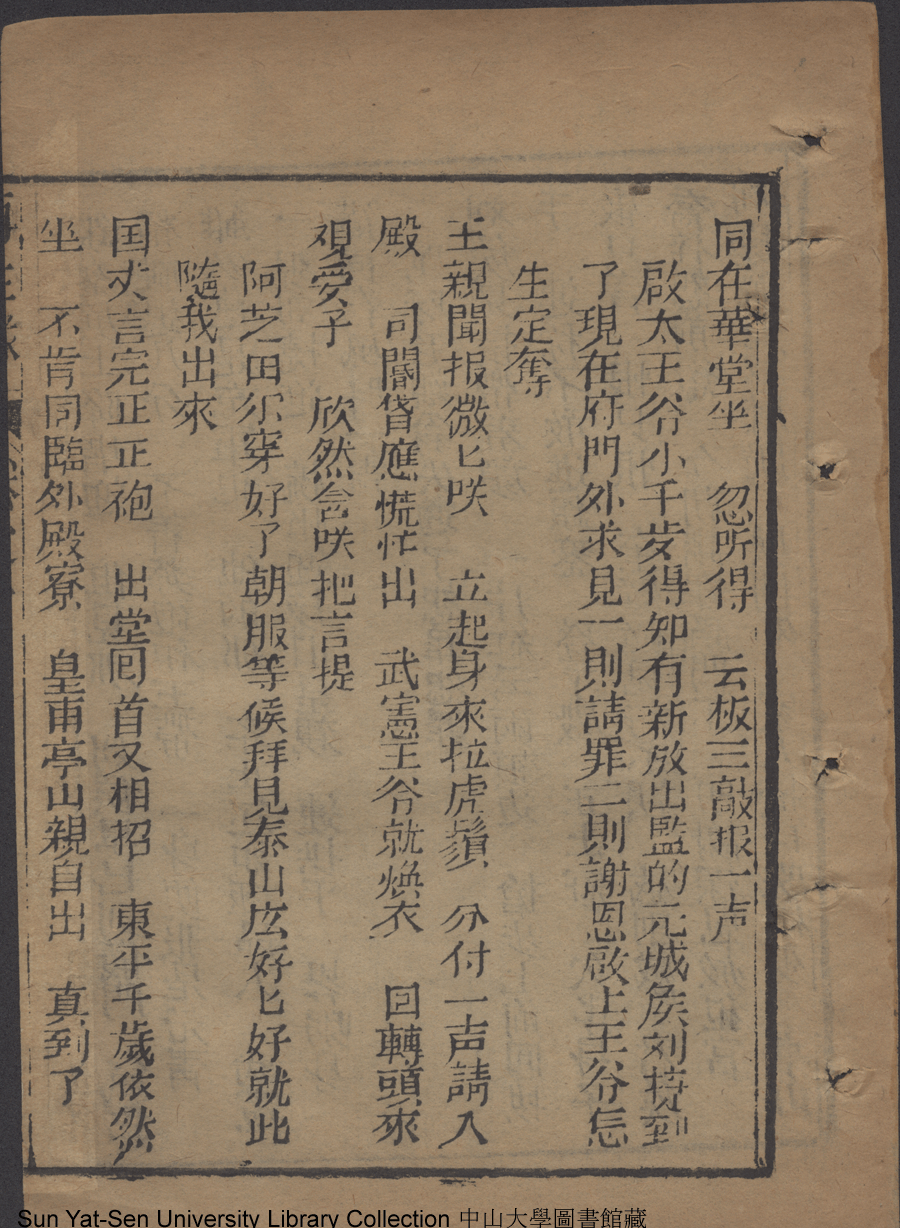 同在華堂坐　忽听得　云板三敲报一声
啟太王爷小千岁得知有新放出監的元城侯刘捷到
了現在府門外求見一則請罪二則謝恩啟上王爷怎
生定奪
王親聞报微匕咲　立起身來拉虎鬚　分付一声請入
殿　司閽答應慌忙出　武憲王爷就焕衣　回轉頭來
視愛子　欣然含咲把言提
阿芝田你穿好了朝服等候拜見泰山庅好匕好就此
隨我出來
国丈言完正正袍　出堂囘首又相招　東平千歲依然
坐　不肯同臨外殿寮　皇甫亭山親自出　真到了
Sun Yat-Sen University Library Collection 中山大學圖書館藏